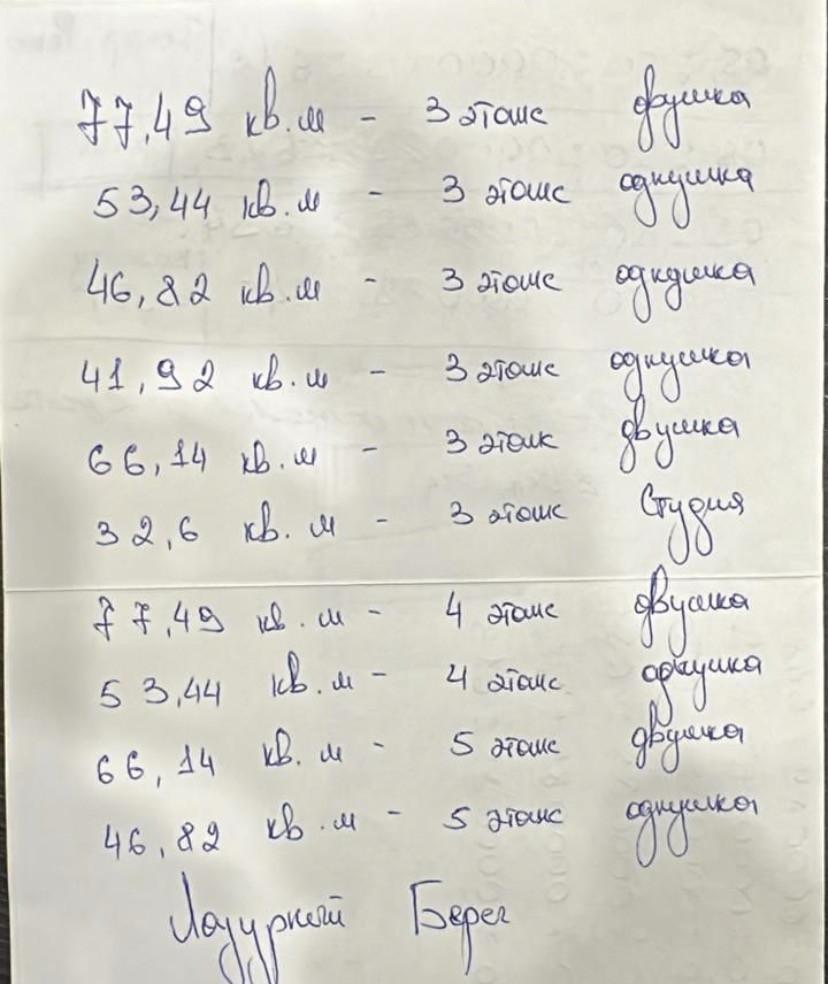 77,49 кв.м - 3 этаж двушка
53,44 кв.м - 3 этаж однушка
46,82 кв.м - 3 этаж однушка
41,92 кв.м - 3 этаж однушка
66,14 кв.м - 3 этаж двушка
32,6 кв.м - 3 этаж Студия
77,49 кв.м - 4 этаж двушка
53,44 кв.м - 4 этаж однушка
66,14 кв.м - 5 этаж двушка
46,82 кв.м - 5 этаж однушка
Лазурный Берег